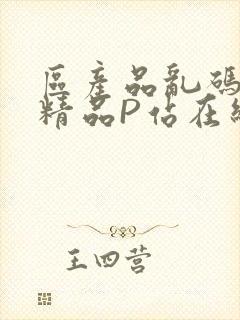 區產品亂碼
精品P佔在線
王四营